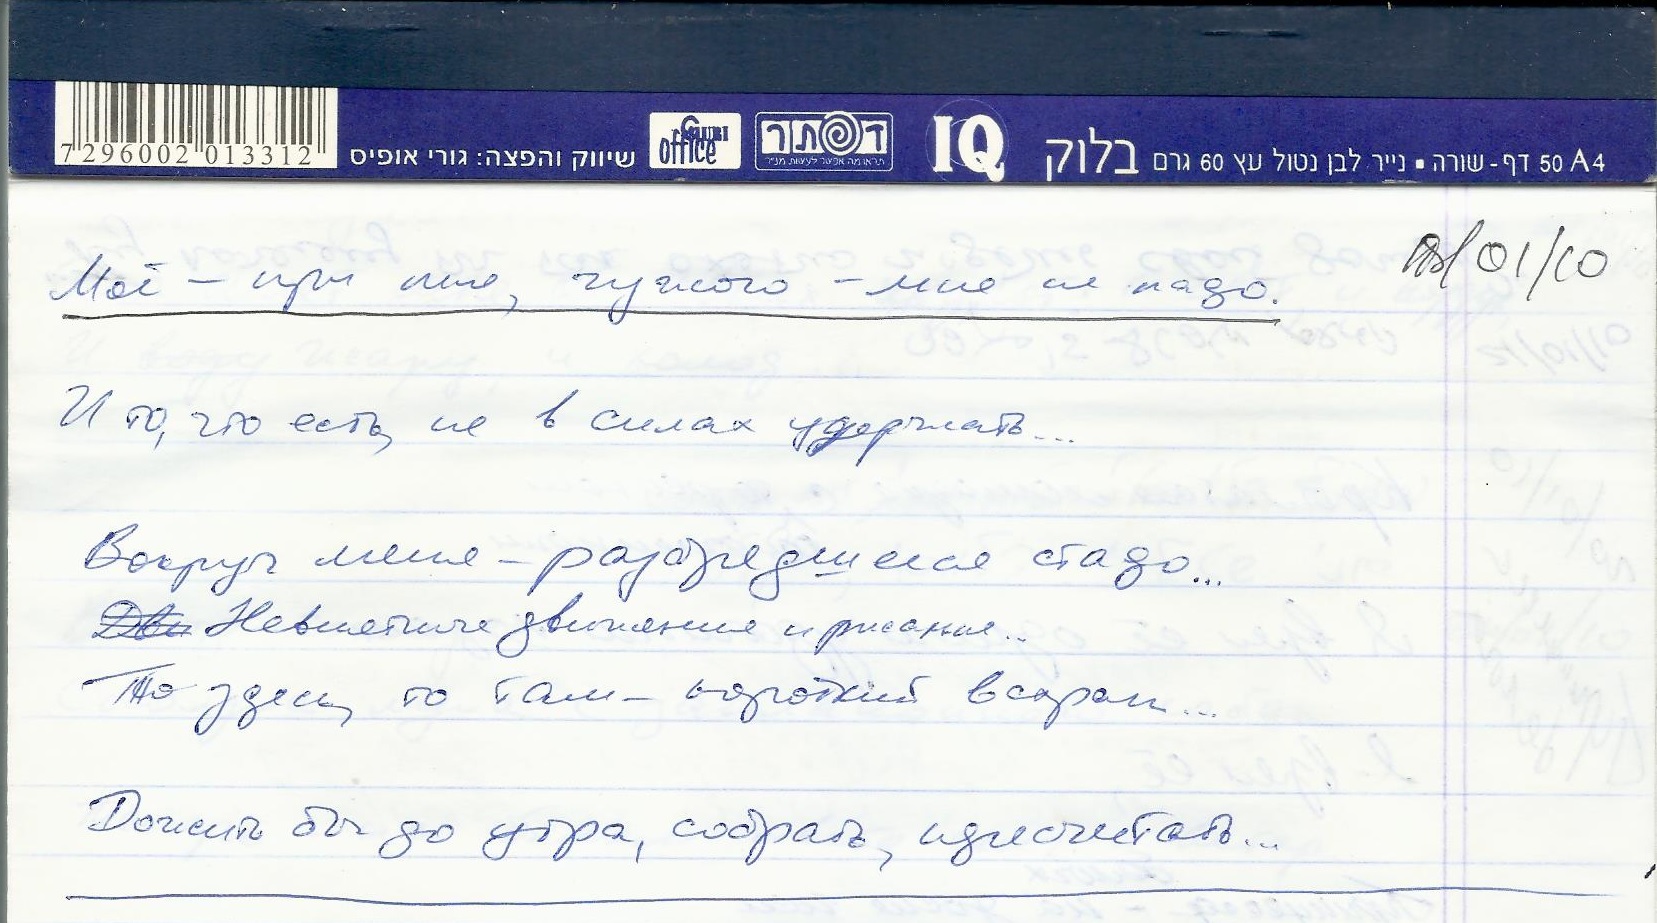 7 296002 013312
שיווק והפצה: גורי אופיס
Guri office
דפתר
IQ
בלוק
A4 50 דף - שורה ▪ נייר לבן נטול עץ 60 גרם
/01/10
Моё – при мне, чужого – мне не надо.
И то, что есть, не в силах удержать...
Вокруг меня – разбредшееся стадо...
Невнятные движение и ржание...
То здесь, то там – короткий всхрап...
Дожить бы до утра, собрать, пересчитать...